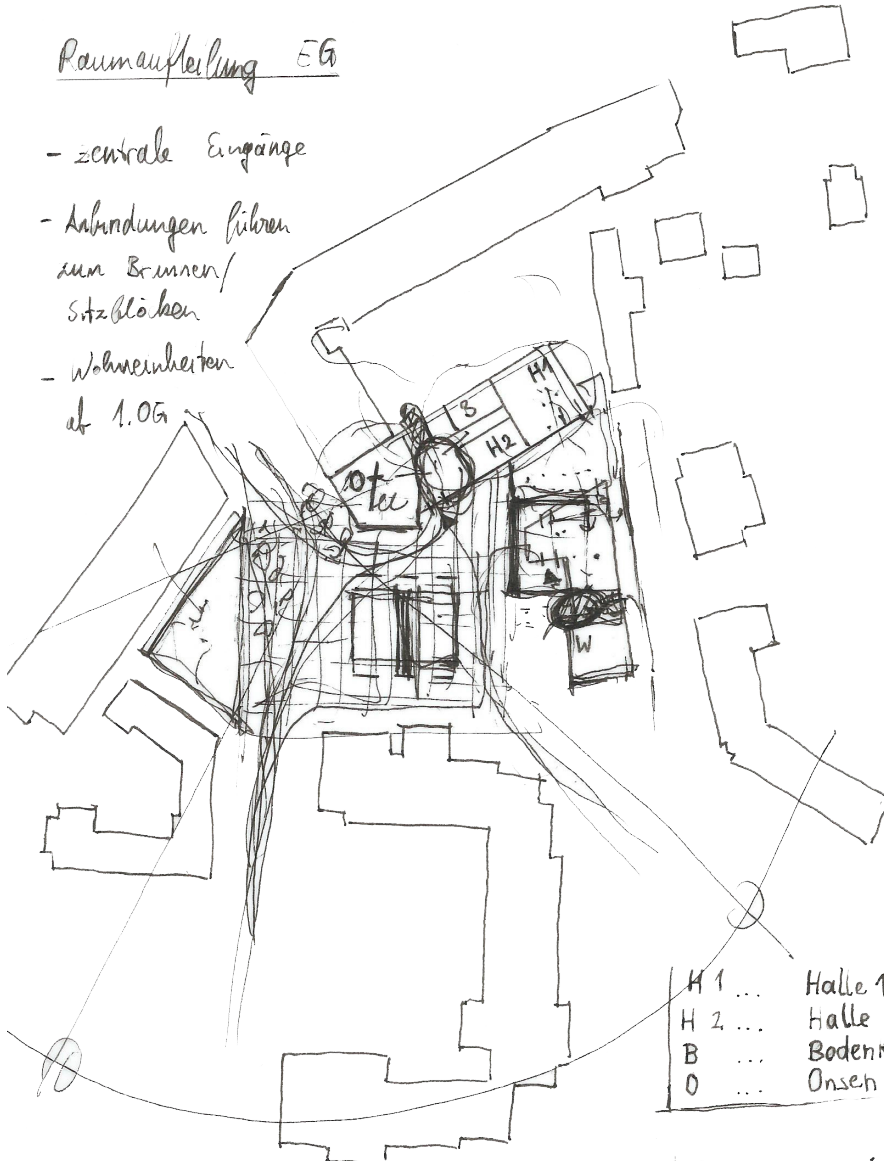 Raumaufteilung EG
- zentrale Eingänge
- Anbindungen führen
zum Brunnen/
Sitzblöcken
- Wohneinheiten
ab 1.OG
H1
B
H2
O
W
H 1 ... Halle 1
H 2 ... Halle
B ... Boden
O ... Onsen